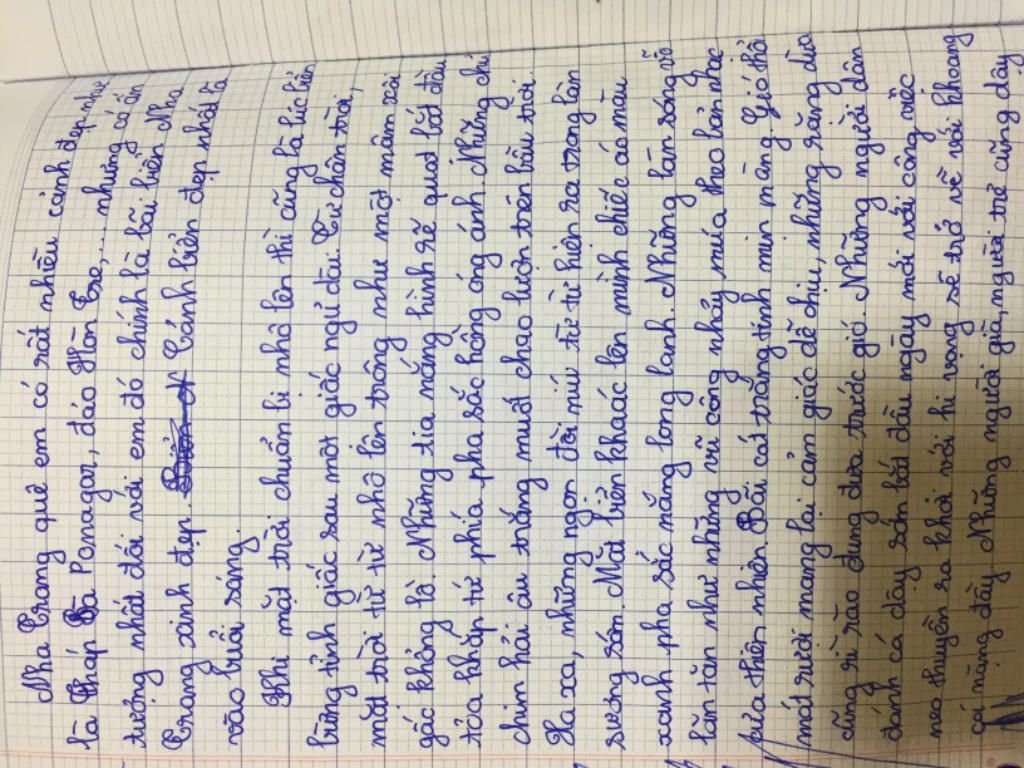 Nha Trang quê em có rất nhiều cảnh đẹp như
là Tháp Bà Ponagar, đảo Hòn Tre,... nhưng có ấn
tướng nhất đối với em đó chính là bãi biển Nha
Trang xinh đẹp. Cảnh biển đẹp nhất là
vào buổi sáng.
Khi mặt trời chuẩn bị nhô lên thì cũng là lúc biển
bừng tỉnh giấc sau một giấc ngủ dài. Từ chân trời,
mặt trời từ từ nhô lên trông như một mâm xôi
gấc khổng lồ. Những tia nắng hình rẽ quạt bắt đầu
tỏa khắp tứ phía pha sắc hồng óng ánh. Những chú
chim hải âu trắng muốt chao lượn trên bầu trời.
Xa xa, những ngọn đồi núi từ từ hiện ra trong làn
sương sớm. Mặt biển khoác lên mình chiếc áo màu
xanh pha sắc nắng long lanh. Những làn sóng vỗ
lăn tăn như những vũ công nhảy múa theo bản nhạc
của thiên nhiên. Bãi cát trắng tinh mịn màng. Gió thổi
mát rượi mang lại cảm giác dễ chịu, những rặng dừa
cũng rì rào đung đưa trước gió. Những người dân
đánh cá dậy sớm bắt đầu ngày mới với công việc
neo thuyền ra khơi với hi vọng sẽ trở về với khoang
cá nặng đầy. Những người già, người trẻ cũng dậy